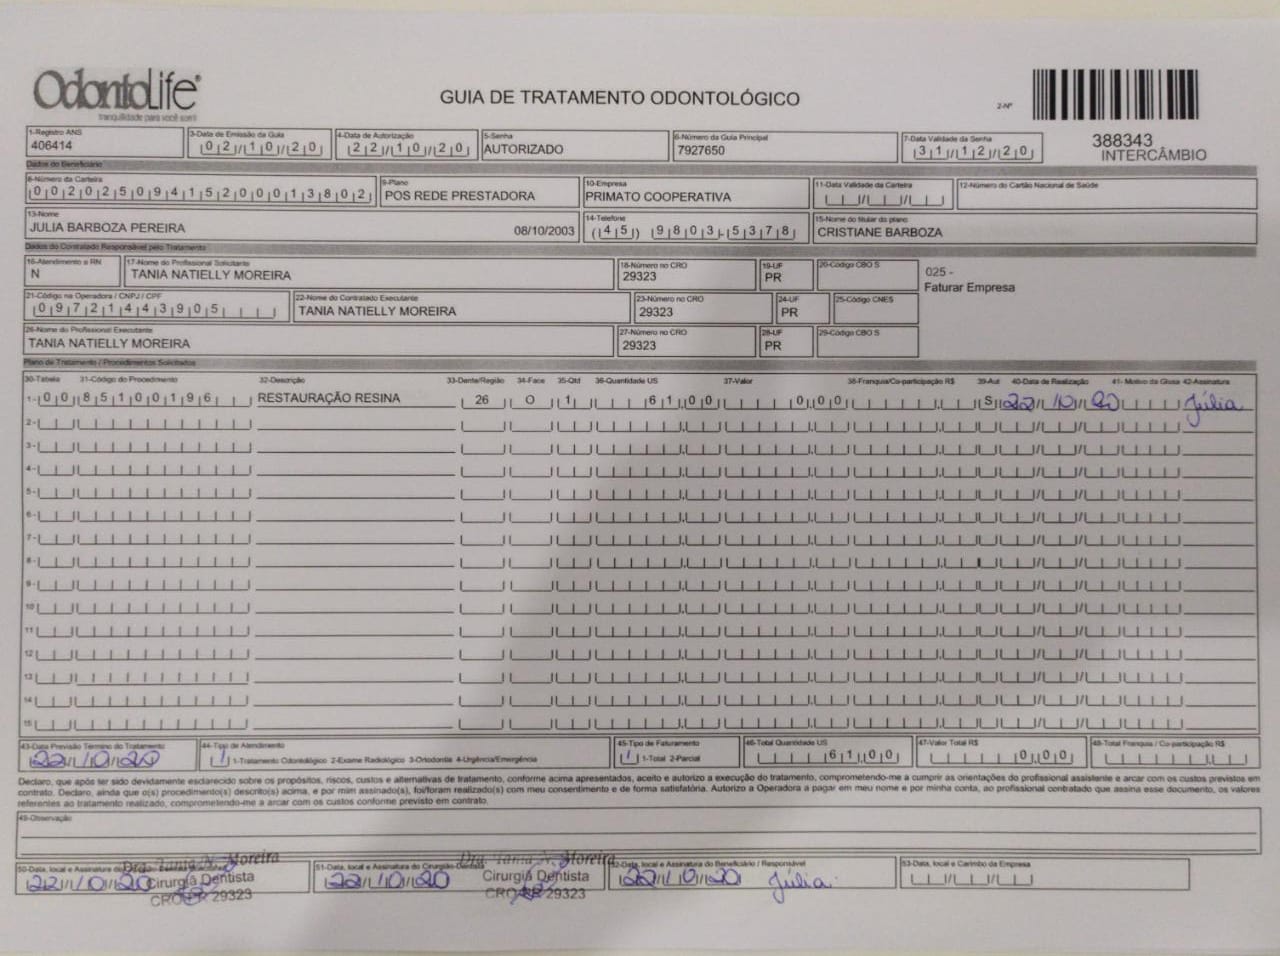 OdontoLife®
tranquilidade para você sorrir
GUIA DE TRATAMENTO ODONTOLÓGICO
2-Nº
388343
INTERCÂMBIO
1-Registro ANS
406414
3-Data de Emissão da Guia
02/10/20
4-Data de Autorização
22/10/20
5-Senha
AUTORIZADO
6-Número da Guia Principal
7927650
7-Data Validade da Senha
31/12/20
Dados do Beneficiário
8-Número da Carteira
00202509415200013802
9-Plano
POS REDE PRESTADORA
10-Empresa
PRIMATO COOPERATIVA
11-Data Validade da Carteira
12-Número do Cartão Nacional de Saúde
13-Nome
JULIA BARBOZA PEREIRA 08/10/2003
14-Telefone
(45) 9803-5378
15-Nome do titular do plano
CRISTIANE BARBOZA
Dados do Contratado Responsável pelo Tratamento
16-Atendimento a RN
N
17-Nome do Profissional Solicitante
TANIA NATIELLY MOREIRA
18-Número no CRO
29323
19-UF
PR
20-Código CBO S
025 -
Faturar Empresa
21-Código na Operadora / CNPJ / CPF
09721443905
22-Nome do Contratado Executante
TANIA NATIELLY MOREIRA
23-Número no CRO
29323
24-UF
PR
25-Código CNES
26-Nome do Profissional Executante
TANIA NATIELLY MOREIRA
27-Número no CRO
29323
28-UF
PR
29-Código CBO S
Plano de Tratamento / Procedimentos Solicitados
30-Tabela 31-Código do Procedimento 32-Descrição 33-Dente/Região 34-Face 35-Qtd 36-Quantidade US 37-Valor 38-Franquia/Co-participação R$ 39-Aut 40-Data de Realização 41- Motivo da Glosa 42-Assinatura
1- 00 85100196 RESTAURAÇÃO RESINA 26 O 1 61,00 0,00 S 22/10/20 Júlia
2-
3-
4-
5-
6-
7-
8-
9-
10
11
12
13
14
15
43-Data Previsão Término do Tratamento
22/10/20
44-Tipo de Atendimento
1 1-Tratamento Odontológico 2-Exame Radiológico 3-Ortodontia 4-Urgência/Emergência
45-Tipo de Faturamento
1 1-Total 2-Parcial
46-Total Quantidade US
61,00
47-Valor Total R$
0,00
48-Total Franquia / Co-participação R$
Declaro, que após ter sido devidamente esclarecido sobre os propósitos, riscos, custos e alternativas de tratamento, conforme acima apresentados, aceito e autorizo a execução do tratamento, comprometendo-me a cumprir as orientações do profissional assistente e arcar com os custos previstos em
contrato. Declaro, ainda que o(s) procedimento(s) descrito(s) acima, e por mim assinado(s), foi/foram realizado(s) com meu consentimento e de forma satisfatória. Autorizo a Operadora a pagar em meu nome e por minha conta, ao profissional contratado que assina esse documento, os valores
referentes ao tratamento realizado, comprometendo-me a arcar com os custos conforme previsto em contrato.
49-Observação
50-Data, local e Assinatura do
22/10/20
Dra. Tania N. Moreira
Cirurgiã Dentista
CRO-PR 29323
51-Data, local e Assinatura do Cirurgião-Dentista
22/10/20
Dra. Tania N. Moreira
Cirurgiã Dentista
CRO-PR 29323
52-Data, local e Assinatura do Beneficiário / Responsável
22/10/20 Júlia
53-Data, local e Carimbo da Empresa